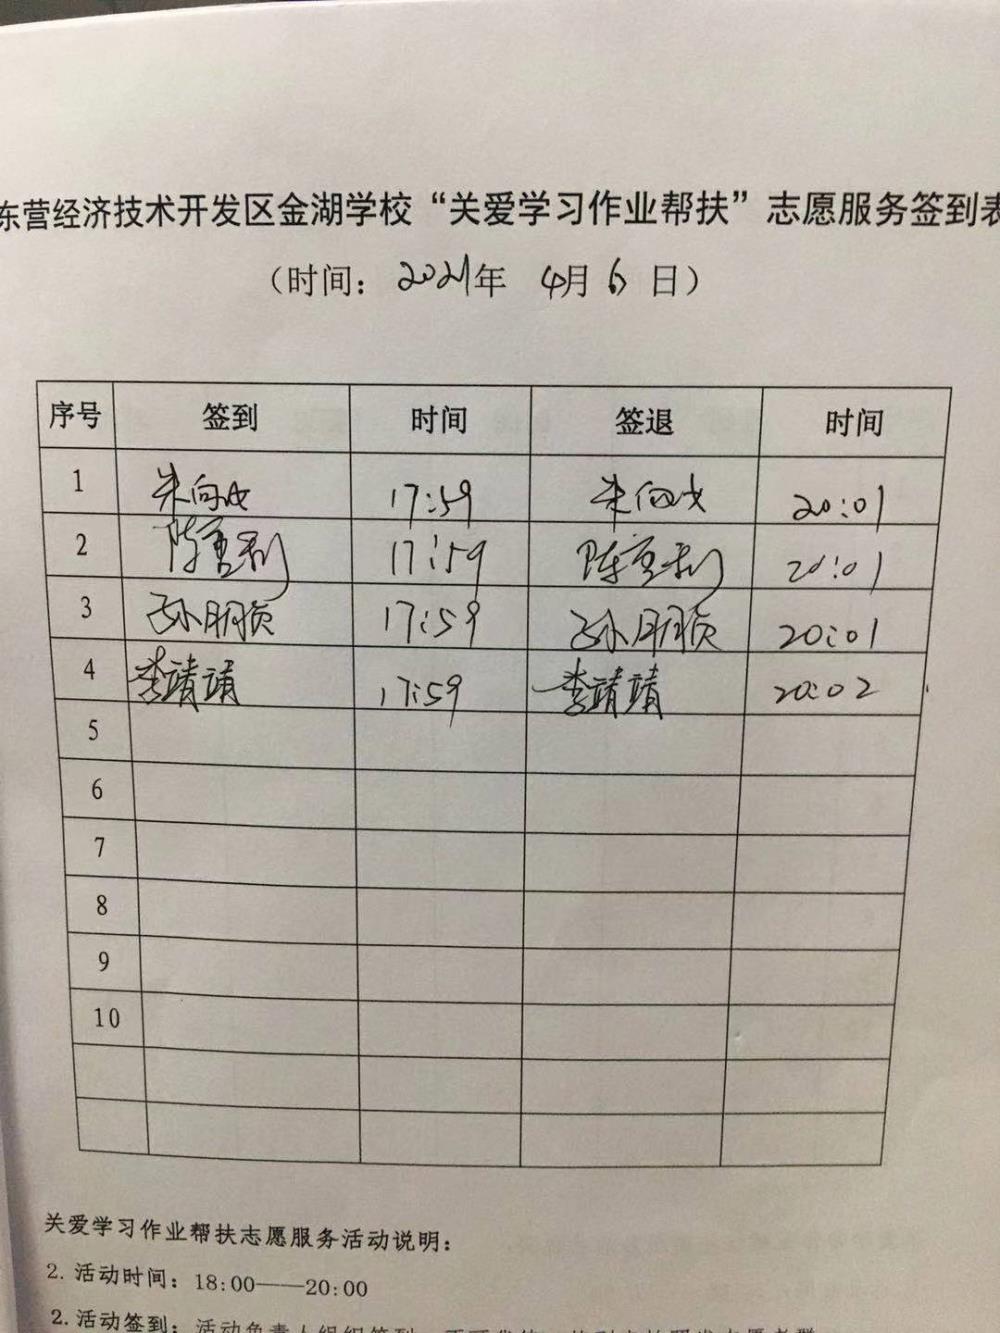 东营经济技术开发区金湖学校“关爱学习作业帮扶”志愿服务签到表
（时间：2021年 4月 6 日）
序号 签到 时间 签退 时间
1 朱向成 17:59 朱向成 20:01
2 陈重利 17:59 陈重利 20:01
3 孙明贞 17:59 孙明贞 20:01
4 李靖靖 17:59 李靖靖 20:02
5
6
7
8
9
10
关爱学习作业帮扶志愿服务活动说明：
2. 活动时间：18:00——20:00
2. 活动签到：活动负责人组织签到